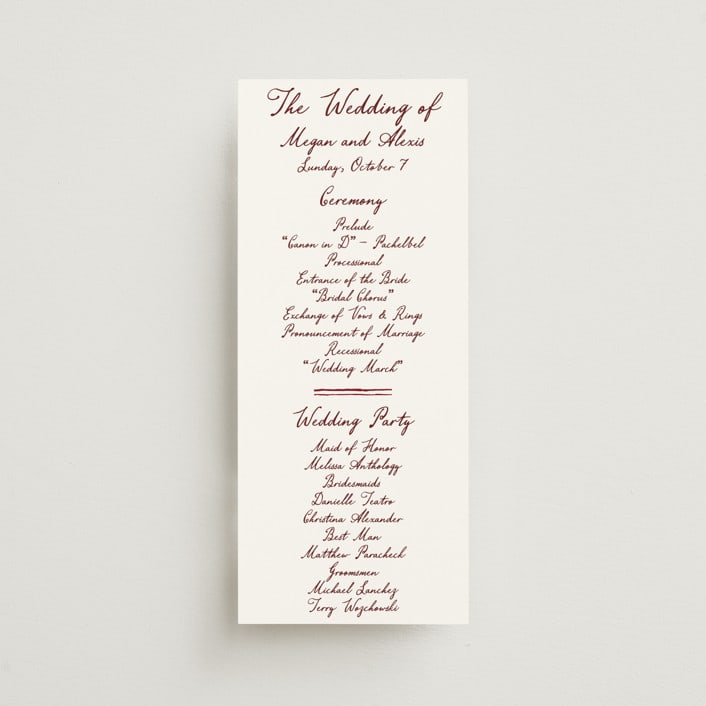 The Wedding of
Megan and Alexis
Sunday, October 7
Ceremony
Prelude
“Canon in D” – Pachelbel
Processional
Entrance of the Bride
“Bridal Chorus”
Exchange of Vows & Rings
Pronouncement of Marriage
Recessional
“Wedding March”
Wedding Party
Maid of Honor
Melissa Anthology
Bridesmaids
Danielle Teatro
Christina Alexander
Best Man
Matthew Paracheck
Groomsmen
Michael Sanchez
Terry Wozchowski